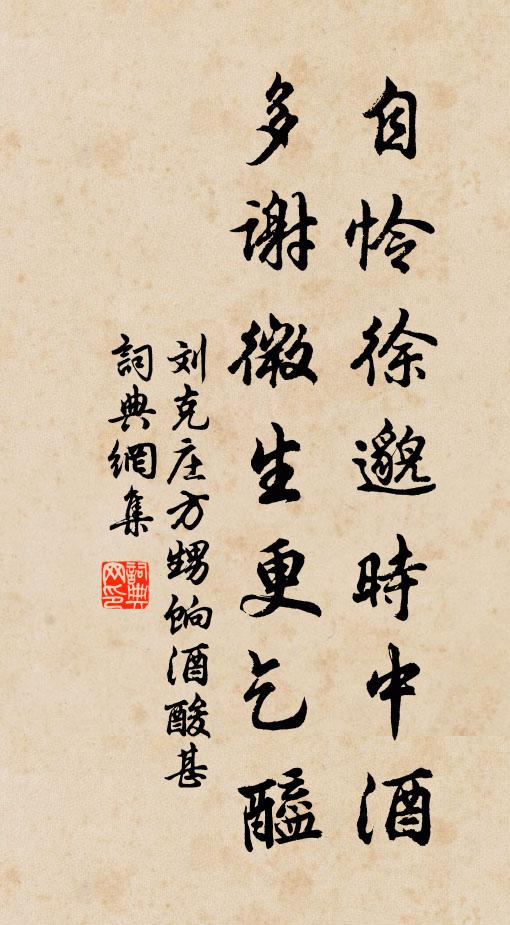 自怜徐邈時中酒
多谢微生更乞醯
刘克庄方甥饷酒酸甚
詞典網集
詞典网印